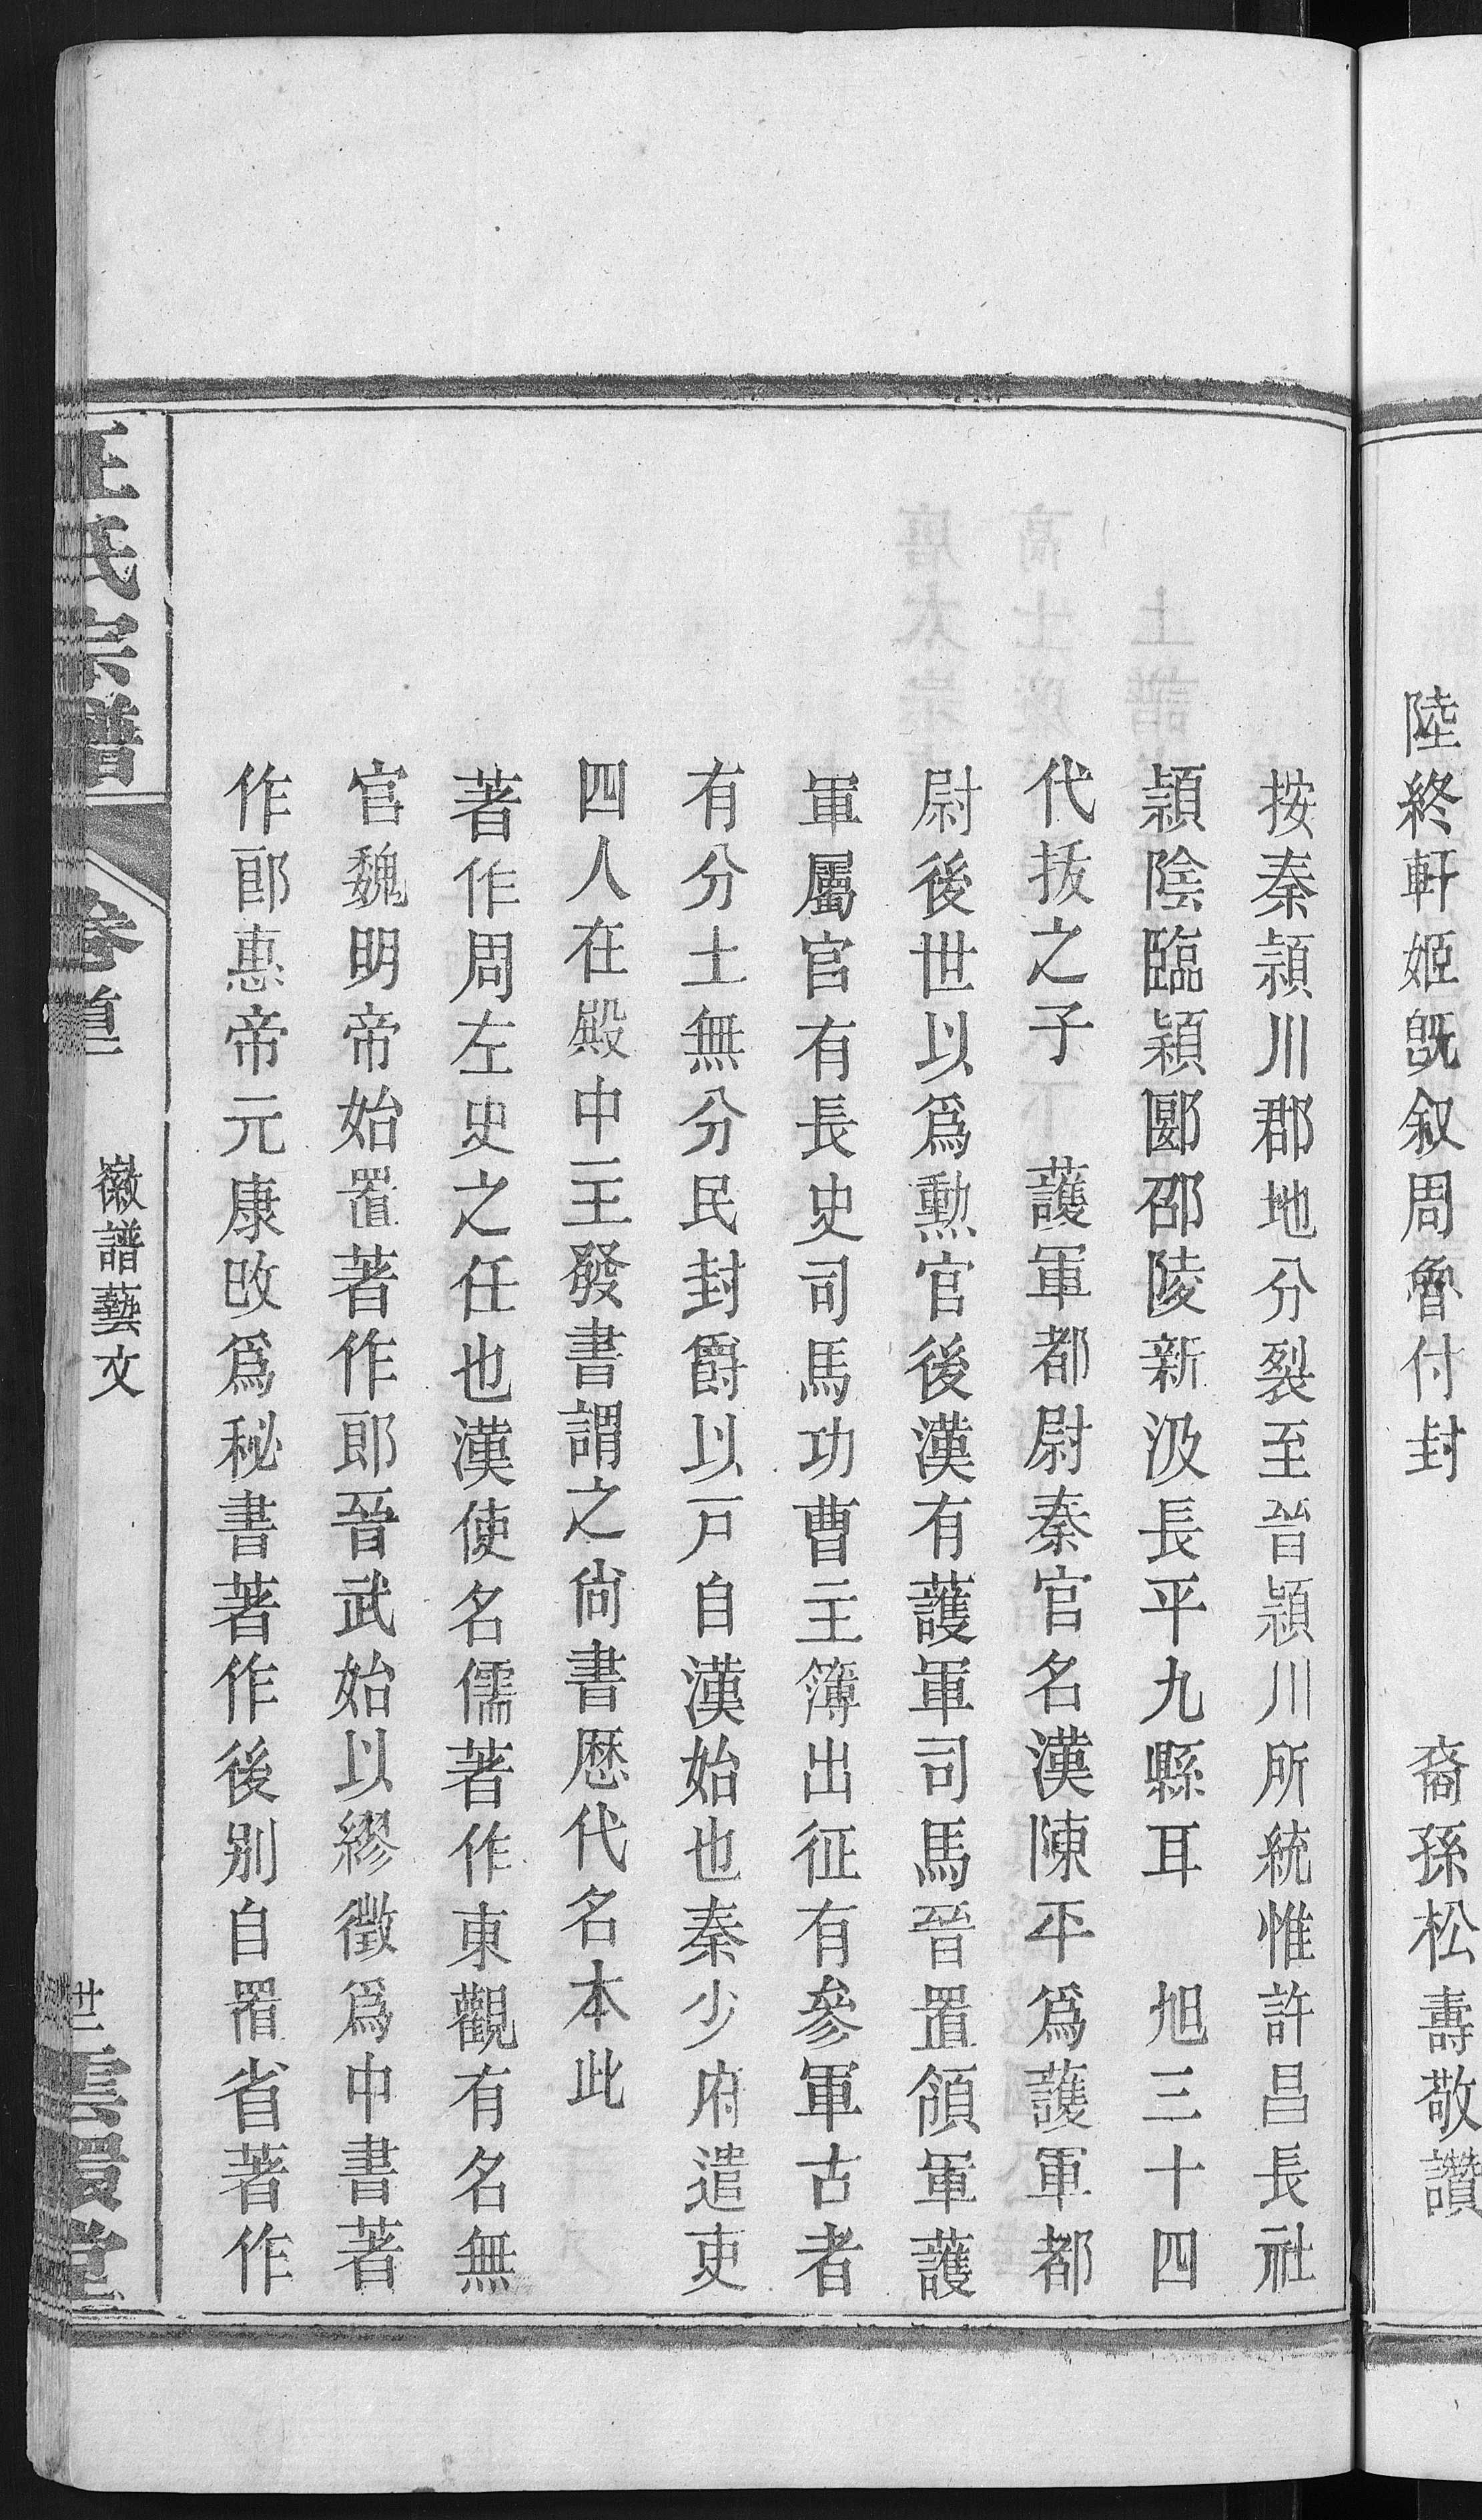 陸終軒姬旣叙周魯付封
裔孫松壽敬讚
按秦潁川郡地分裂至晉潁川所統惟許昌長社
頴陰臨穎郾邵陵新汲長平九縣耳　旭三十四
代拔之子　護軍都尉秦官名漢陳平爲護軍都
尉後世以爲勲官後漢有護軍司馬晉置領軍護
軍屬官有長史司馬功曹主簿出征有參軍古者
有分土無分民封爵以戸自漢始也秦少府遣吏
四人在殿中主發書謂之尙書厯代名本此
著作周左史之任也漢使名儒著作東觀有名無
官魏明帝始置著作郎晉武始以繆徵爲中書著
作郎惠帝元康改爲秘書著作後别自置省著作
汪氏宗譜
卷首
徽譜藝文
世